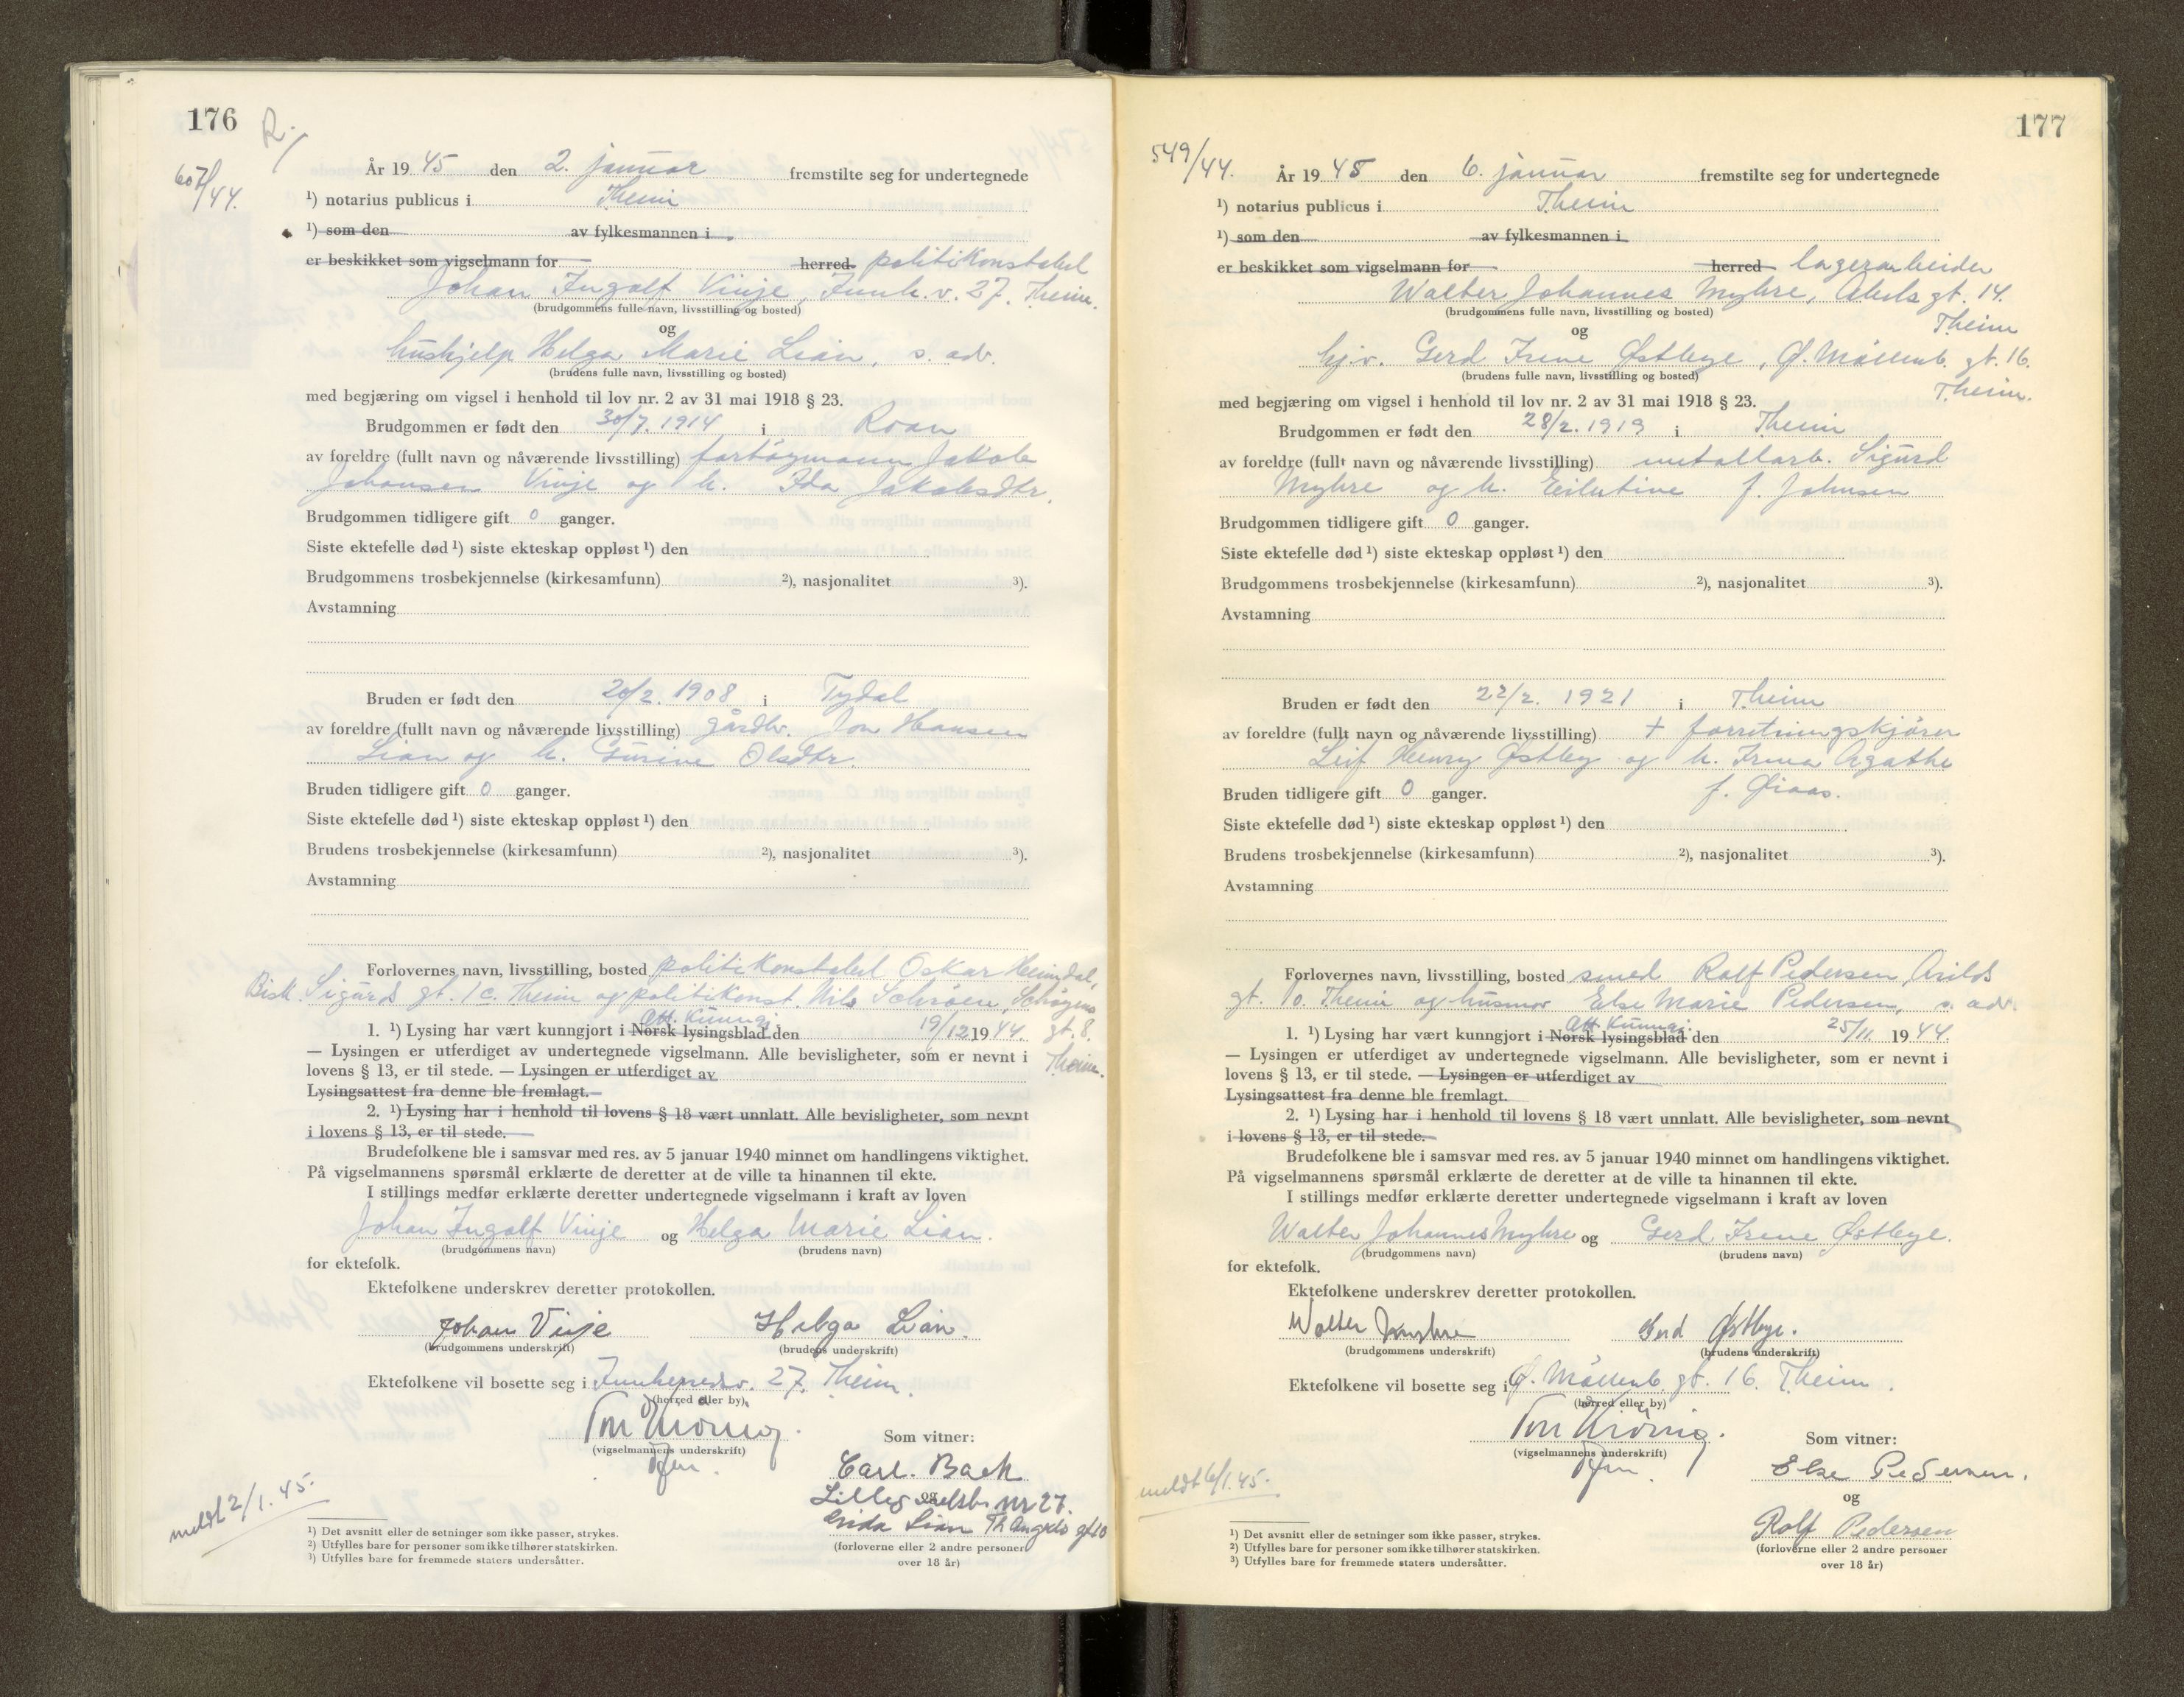 176
R.
607/44.
År 19 45 den 2. januar fremstilte seg for undertegnede
¹) notarius publicus i Theim
¹) som den av fylkesmannen i
er beskikket som vigselmann for herred politikonstabel
Johan Ingolf Vinje, Innh. v. 27. Theim.
(brudgommens fulle navn, livsstilling og bosted)
og
hushjelp Helga Marie Lian, s. adr.
(brudens fulle navn, livsstilling og bosted)
med begjæring om vigsel i henhold til lov nr. 2 av 31 mai 1918 § 23.
Brudgommen er født den 30/7. 1914 i Roan
av foreldre (fullt navn og nåværende livsstilling) fartøymann Jakob
Johansen Vinje og h. Ida Jakobsdtr.
Brudgommen tidligere gift 0 ganger.
Siste ektefelle død ¹) siste ekteskap oppløst ¹) den
Brudgommens trosbekjennelse (kirkesamfunn) ²), nasjonalitet ³).
Avstamning
Bruden er født den 20/2. 1908 i Tydal
av foreldre (fullt navn og nåværende livsstilling) gårdbr. Jon Hansen
Lian og h. Gurine Olsdtr.
Bruden tidligere gift 0 ganger.
Siste ektefelle død ¹) siste ekteskap oppløst ¹) den
Brudens trosbekjennelse (kirkesamfunn) ²), nasjonalitet ³).
Avstamning
Forlovernes navn, livsstilling, bosted politikonstabel Oskar Heimdal,
Bisk. Sigurds gt. 1c. Theim og politikonst. Nils Schrøen, Schøgens
gt. 8.
Theim.
Att. Kunngj.
1. ¹) Lysing har vært kunngjort i Norsk lysingsblad den 19/12 19 44.
— Lysingen er utferdiget av undertegnede vigselmann. Alle bevisligheter, som er nevnt i
lovens § 13, er til stede. — Lysingen er utferdiget av
Lysingsattest fra denne ble fremlagt.
2. ¹) Lysing har i henhold til lovens § 18 vært unnlatt. Alle bevisligheter, som nevnt
i lovens § 13, er til stede.
Brudefolkene ble i samsvar med res. av 5 januar 1940 minnet om handlingens viktighet.
På vigselmannens spørsmål erklærte de deretter at de ville ta hinannen til ekte.
I stillings medfør erklærte deretter undertegnede vigselmann i kraft av loven
Johan Ingolf Vinje og Helga Marie Lian.
(brudgommens navn) (brudens navn)
for ektefolk.
Ektefolkene underskrev deretter protokollen.
Johan Vinje Helga Lian.
(brudgommens underskrift) (brudens underskrift)
Ektefolkene vil bosette seg i Innherredsv. 27. Theim.
(herred eller by)
(vigselmannens underskrift)
Som vitner:
Carl. Bach
og
nr 27.
Lian Th Angels gt 10
(forloverne eller 2 andre personer
over 18 år)
meldt 2/1. 45.
¹) Det avsnitt eller de setninger som ikke passer, strykes.
²) Utfylles bare for personer som ikke tilhører statskirken.
³) Utfylles bare for fremmede staters undersåtter.
177
549/44.
År 19 45 den 6. januar fremstilte seg for undertegnede
¹) notarius publicus i Theim
¹) som den av fylkesmannen i
er beskikket som vigselmann for herred lagerarbeider
Walter Johannes Myhre, gt. 14.
Theim
(brudgommens fulle navn, livsstilling og bosted)
og
hj.v. Gerd Irene Østbye, Ø. Møllenb. gt. 16.
Theim.
(brudens fulle navn, livsstilling og bosted)
med begjæring om vigsel i henhold til lov nr. 2 av 31 mai 1918 § 23.
Brudgommen er født den 28/2. 1919 i Theim
av foreldre (fullt navn og nåværende livsstilling) metallarb. Sigurd
Myhre og h. f. Johnsen
Brudgommen tidligere gift 0 ganger.
Siste ektefelle død ¹) siste ekteskap oppløst ¹) den
Brudgommens trosbekjennelse (kirkesamfunn) ²), nasjonalitet ³).
Avstamning
Bruden er født den 22/2. 1921 i Theim
av foreldre (fullt navn og nåværende livsstilling) + forretningskjører
Leif Henry Østbey og h. Irma Agathe
f. Øiaas.
Bruden tidligere gift 0 ganger.
Siste ektefelle død ¹) siste ekteskap oppløst ¹) den
Brudens trosbekjennelse (kirkesamfunn) ²), nasjonalitet ³).
Avstamning
Forlovernes navn, livsstilling, bosted smed Rolf Pedersen, Arilds
gt. 10. Theim og husmor Else Marie Pedersen, s. adr.
Att. Kunngj.
1. ¹) Lysing har vært kunngjort i Norsk lysingsblad den 25/11. 19 44.
— Lysingen er utferdiget av undertegnede vigselmann. Alle bevisligheter, som er nevnt i
lovens § 13, er til stede. — Lysingen er utferdiget av
Lysingsattest fra denne ble fremlagt.
2. ¹) Lysing har i henhold til lovens § 18 vært unnlatt. Alle bevisligheter, som nevnt
i lovens § 13, er til stede.
Brudefolkene ble i samsvar med res. av 5 januar 1940 minnet om handlingens viktighet.
På vigselmannens spørsmål erklærte de deretter at de ville ta hinannen til ekte.
I stillings medfør erklærte deretter undertegnede vigselmann i kraft av loven
Walter Johannes Myhre og Gerd Irene Østbye.
(brudgommens navn) (brudens navn)
for ektefolk.
Ektefolkene underskrev deretter protokollen.
Walter Myhre Gerd Østbye.
(brudgommens underskrift) (brudens underskrift)
Ektefolkene vil bosette seg i Ø. Møllenb. gt. 16. Theim.
(herred eller by)
(vigselmannens underskrift)
Som vitner:
Else Pedersen.
og
Rolf Pedersen
(forloverne eller 2 andre personer
over 18 år)
meldt 6/1.45.
¹) Det avsnitt eller de setninger som ikke passer, strykes.
²) Utfylles bare for personer som ikke tilhører statskirken.
³) Utfylles bare for fremmede staters undersåtter.